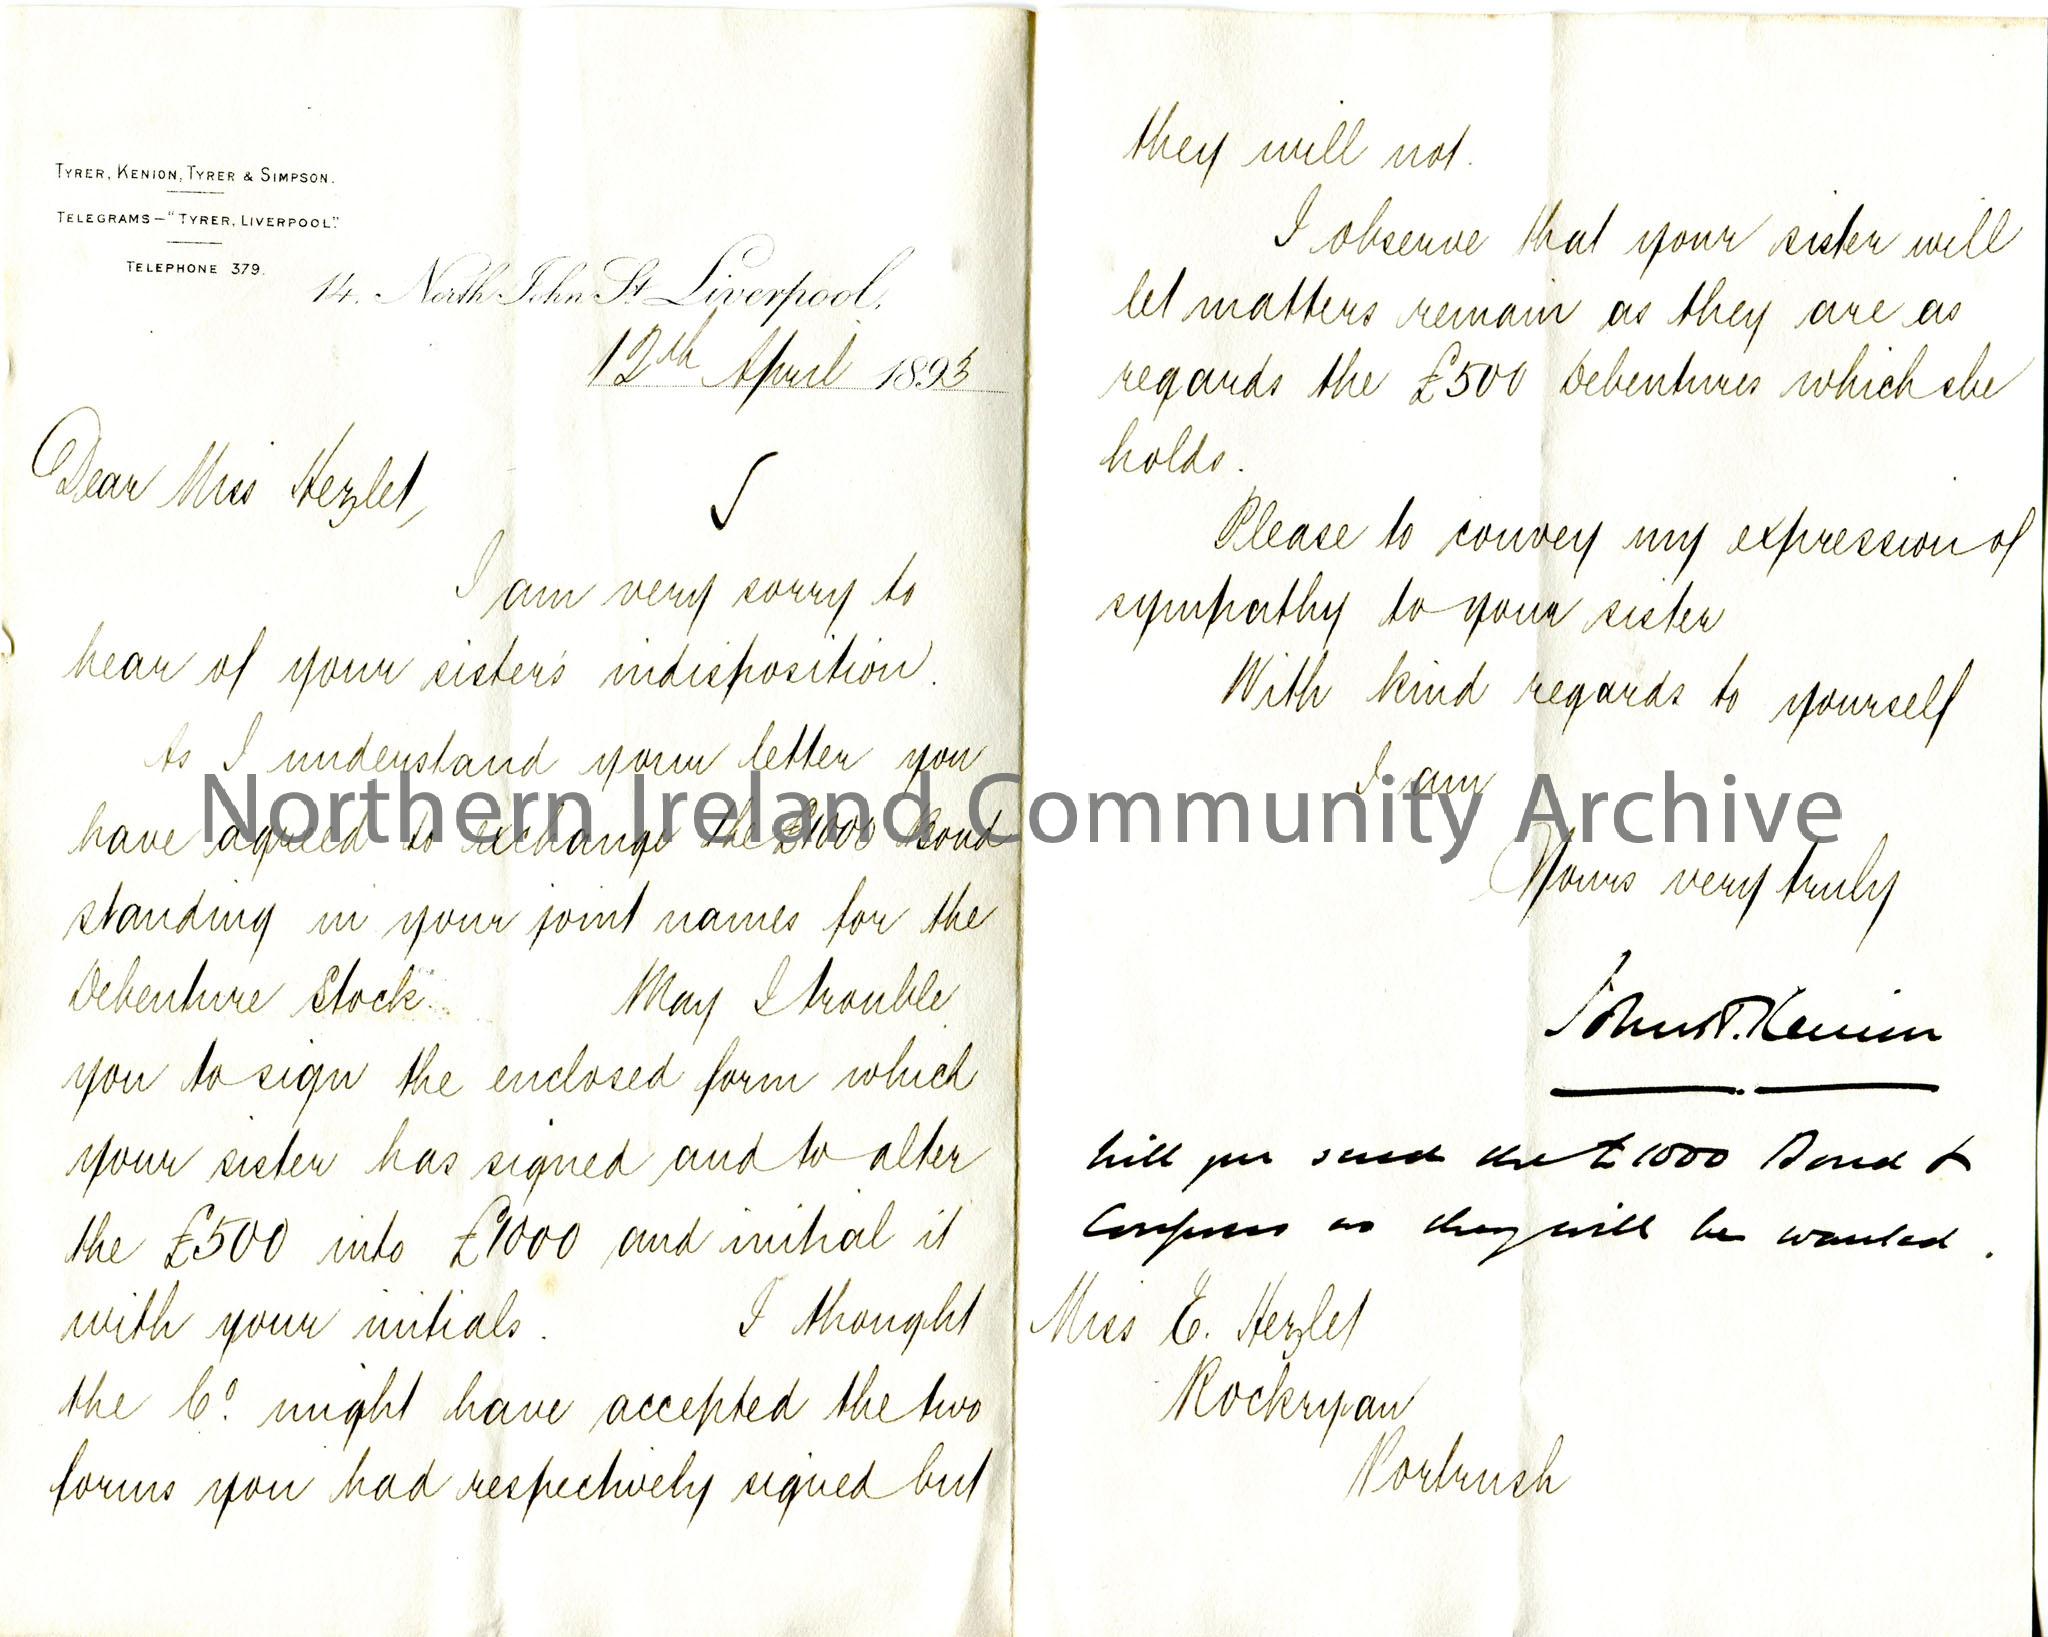 TYRER, KENION, TYRER & SIMPSON.
TELEGRAMS—"TYRER, LIVERPOOL".
TELEPHONE 379.
14, North John St. Liverpool,
12th April 1893
Dear Miss Hezlet,
I am very sorry to
hear of your sister's indisposition.
As I understand your letter you
have agreed to exchange the £1000 Bond
standing in your joint names for the
Debenture Stock. May I trouble
you to sign the enclosed form which
your sister has signed and to alter
the £500 into £1000 and initial it
with your initials. I thought
the Co. might have accepted the two
forms you had respectively signed but
they will not.
I observe that your sister will
let matters remain as they are as
regards the £500 Debentures which she
holds.
Please to convey my expression of
sympathy to your sister
With kind regards to yourself
I am
Yours very truly
Kenion
Will you send the £1000 Bond &
Coupons as they will be wanted.
Miss E. Hezlet
Rockryan
Portrush
Northern Ireland Community Archive